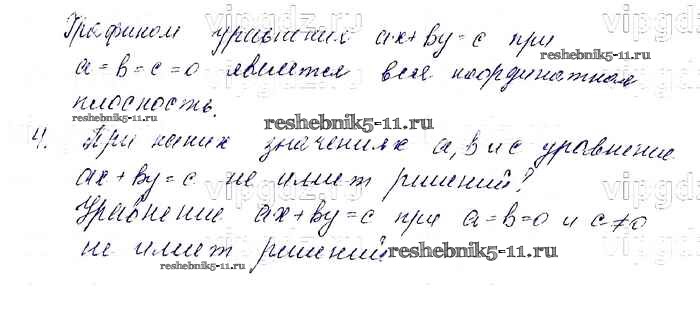 Графиком уравнения ax+by=c при
a=b=c=0 является вся координатная
плоскость.
4. При каких значениях a, b и c уравнение
ax+by=c не имеет решений?
Уравнение ax+by=c при a=b=0 и c≠0
не имеет решений
vipgdz.ru
reshebnik5-11.ru
reshebnik5-11.ru
reshebnik5-11.ru
reshebnik5-11.ru
reshebnik5-11.ru